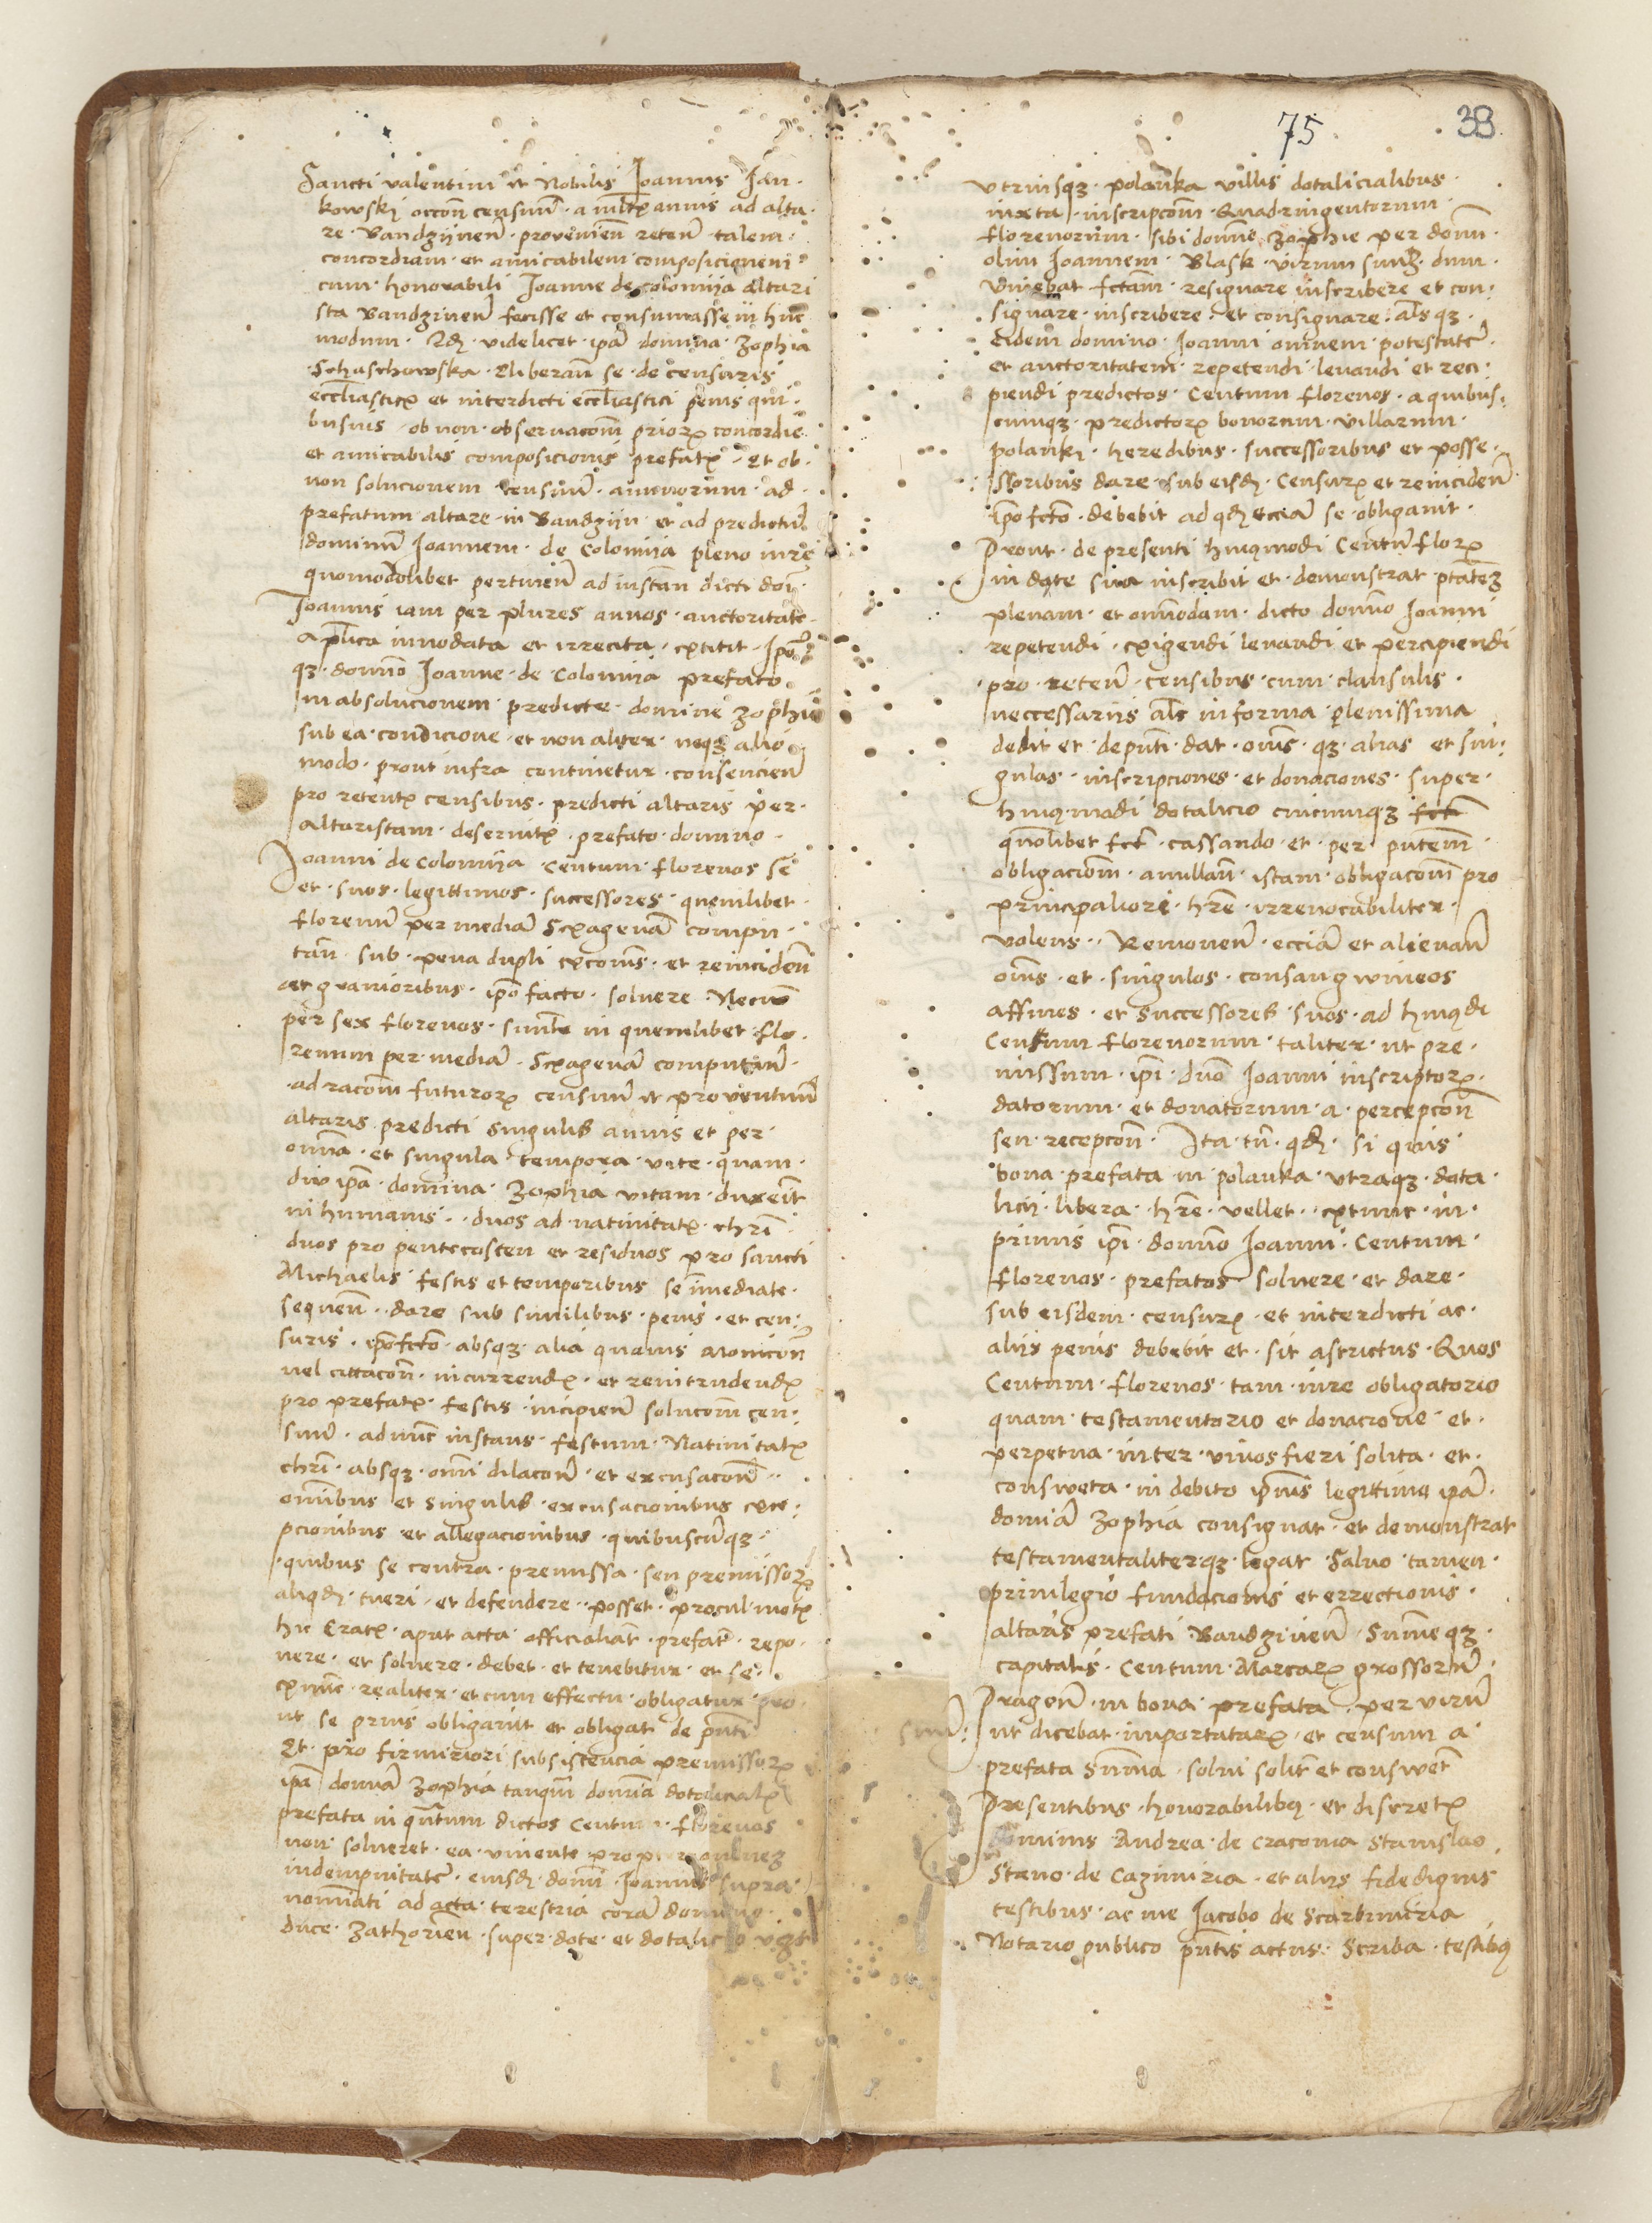 Sancti valentini et Nobilis Joannis Jan·
kowskj occon̄ censuū · a mltꝝ annis ad alta·
re · Bandzijnen̄ · provenien̄ reten̄ · talem ·
concordiam · et amicabilem composicionem
cum · honorabili Joanne de Colomija altari
sta Bandzinen̄ fecisse et consumasse in hūc
modum · Qđ · videlicet · ipā domina · Zophia
Schaschowska · Cliberan̄ se · de censuris
eccl̄iasticꝝ et interdicti eccl̄iastici penis qui·
busuis · ob non · obseruacōm̄ priorꝝ concordie
et amicabilis composicionis prefatꝝ · Et ob·
non solucionem censuū · annuorum · ad ·
prefatum altare · in Bandzijn et ad predictū
dominū Joannem · de Colomija pleno iure
quomodolibet pertinen̄ ad instan̄ dicti doī
Joannis iam per plures annos · auctoritate ·
ap̄lica innodata et irretita · extitit · Ipō
qꝫ · domīo Joanne · de Colomija prefato
in absolucionem predicte · domine Zophie
sub ea · condicione · et non aliter · neqꝫ alio
modo · prout infra continetur · consencien̄
pro retentꝝ censibus · predicti altaris per·
altaristam · deseruitꝝ · prefato · domino ·
Joanni de Colomija · Centum · florenos se
et · suos · legittimos · successores · quemlibet ·
florenū per mediā Sexagenā compu·
tan̄ · sub · pena dupli excōīs · et reinciden̄
et grauioribus · ipō facto · soluere · Necnō
per sex florenos · simlr in quemlibet flo·
renum per · mediā · Sexagenā computan̄ ·
ad racōm̄ futurorꝝ censuū et prouentuū
altaris predicti singulis annis et per
omnia · et singula tempora · vite · quam ·
diu ipā · domina · Zophia vitam · duxerit
in humanis · duos ad natiuitatꝝ · christi ·
duos pro pentecosten et residuos pro sancti
Michaelis festis et temporibus se īmediate ·
sequen̄ · dare sub similibus · penis · et cen:
suris · ipōfctō · absqꝫ alia quauis monicōn̄
uel cittacōn̄ · incurrendꝝ · et reintrudendꝝ
pro prefatꝝ · festis · incipien̄ solucōm̄ cen:
suū · ad nūc instans · festum · Natiuitatꝝ
christi · absqꝫ · omni dilacōn̄ · et excusacōn̄ ·
omnibus et singulis · excusacionibus exce:
pcionibus et allegacionibus · quibuscūqꝫ ·
quibus se contra · premissa · seu premissorꝝ
aliqđ · tueri · et defendere · posset · procul motꝝ
hic Cracꝝ · aput acta · officiolatꝰ · prefatꝰ · repo·
nere · et soluere · debet · et tenebitur · et se ·
extūc · realiter · et cum effectu · obligatur pro·
ut se prius obligarūt et obligat de pn̄ti
Et · pro firmiriori subsistencia premissorꝝ
ipā domīā Zophia tanquā domīa dotalicialꝝ
prefata in quātum dictos Centum · florenos
non · solueret · ea · viuente
indempnitatē · eiusđ · domī · Joannis supra
nominati ad acta · terestria corā domino ·
duce · Zathorien̄ · super · dote · et dotalicio
75
38
vtriusqꝫ · polanka villis dotalicialibus ·
iuxta · inscripcōm̄ · Quadringentorum ·
florenorum · sibi domīe Zophie per domn̄ ·
olim Joannem · Blask · virum suuꝫ · dum ·
Viuebat fctam̄ · resignare inscribere et con:
signare · inscribere · et consignare · als̄ qꝫ ·
Eidem domino · Joanni omnem potestatē ·
et auctoritatem · repetendi · leuandi et reci:
piendi predictos · Centum florenos · a quibus:
cumqꝫ · predictorꝝ bonorum · villarum ·
polankj · heredibus · successoribus et posse·
ssoribus dare sub eisđ · Censurꝝ et reinciden̄
ipōfctō · debebit ad qđ ecciā se · obligauit ·
Prout · de presenti huiqmodi Centū florꝝ
in dote sua inscribit et · demonstrat ptātēꝫ
plenam · et om̄modam · dicto domīo Joanni
repetendi · exigendi leuandi et percipiendi
pro · reten̄ · censibus · cum · clausulis ·
neccessariis als̄ in forma plenissima
dedit et · deputi · dat · oīns · qꝫ · alias et sin:
gulas · inscripciones · et donaciones · super ·
huiqmodi dotalicio cuicumqꝫ fct̄
quōlibet fct̄ · cassando · et · per pn̄tem̄
obligacōm̄ · anullan̄ · istam · obligacōm̄ pro
principaliori · hr̄e · irreuocabiliter ·
volens · Remouen̄ · ecciā et alienan̄
oīns · et · singulos · consangwineos
affines · et successores suos · ad huiqdi
Centum florenorum · taliter · ut pre·
missum · ipi · dnō Joanni inscriptorꝝ ·
datorum · et donatorum · a · percepcōn̄
seu recepcōn̄ · Ita · tn̄ · qđ · si quis
bona · prefata in polanka · vtraqꝫ · dota·
licij · libera · hr̄e · vellet · extunc · in ·
primis ipi · domīo Joanni · Centum ·
florenos · prefatos soluere · et dare ·
sub eisdem · censurꝝ · et interdicti ac ·
alijs penis debebit et · sit astrictus · Quos
Centum · florenos · tam · iure obligatorio
quam · testamentorio et donacione · et ·
perpetua · inter · viuos fieri solita · et ·
consweta · in debito ipīus legittimo ipā ·
domīā Zophia consignat · et demonstrat
testamentaliterqꝫ legat Saluo · tamen ·
priuilegio fundacionis et errectionis ·
altaris prefati Bandzinen̄ · Summeqꝫ ·
capitalis · Centum · Marcarꝝ grossorū ·
Pragen̄ · in bona prefata · per virū
suū: ut dicebat · importatarꝝ · et censum a
prefata Summa · solui solit̄ et conswet̄
Presentibus · honorabilibꝰ · et discretꝝ
dominis Andrea · de Cracouia Stanislao
Stano · de Cazimiria · et alijs fidedignis
testibus · ac me Jacobo de Scarbimiria
Notario publico pn̄tis actus · Scriba · testibꝰ